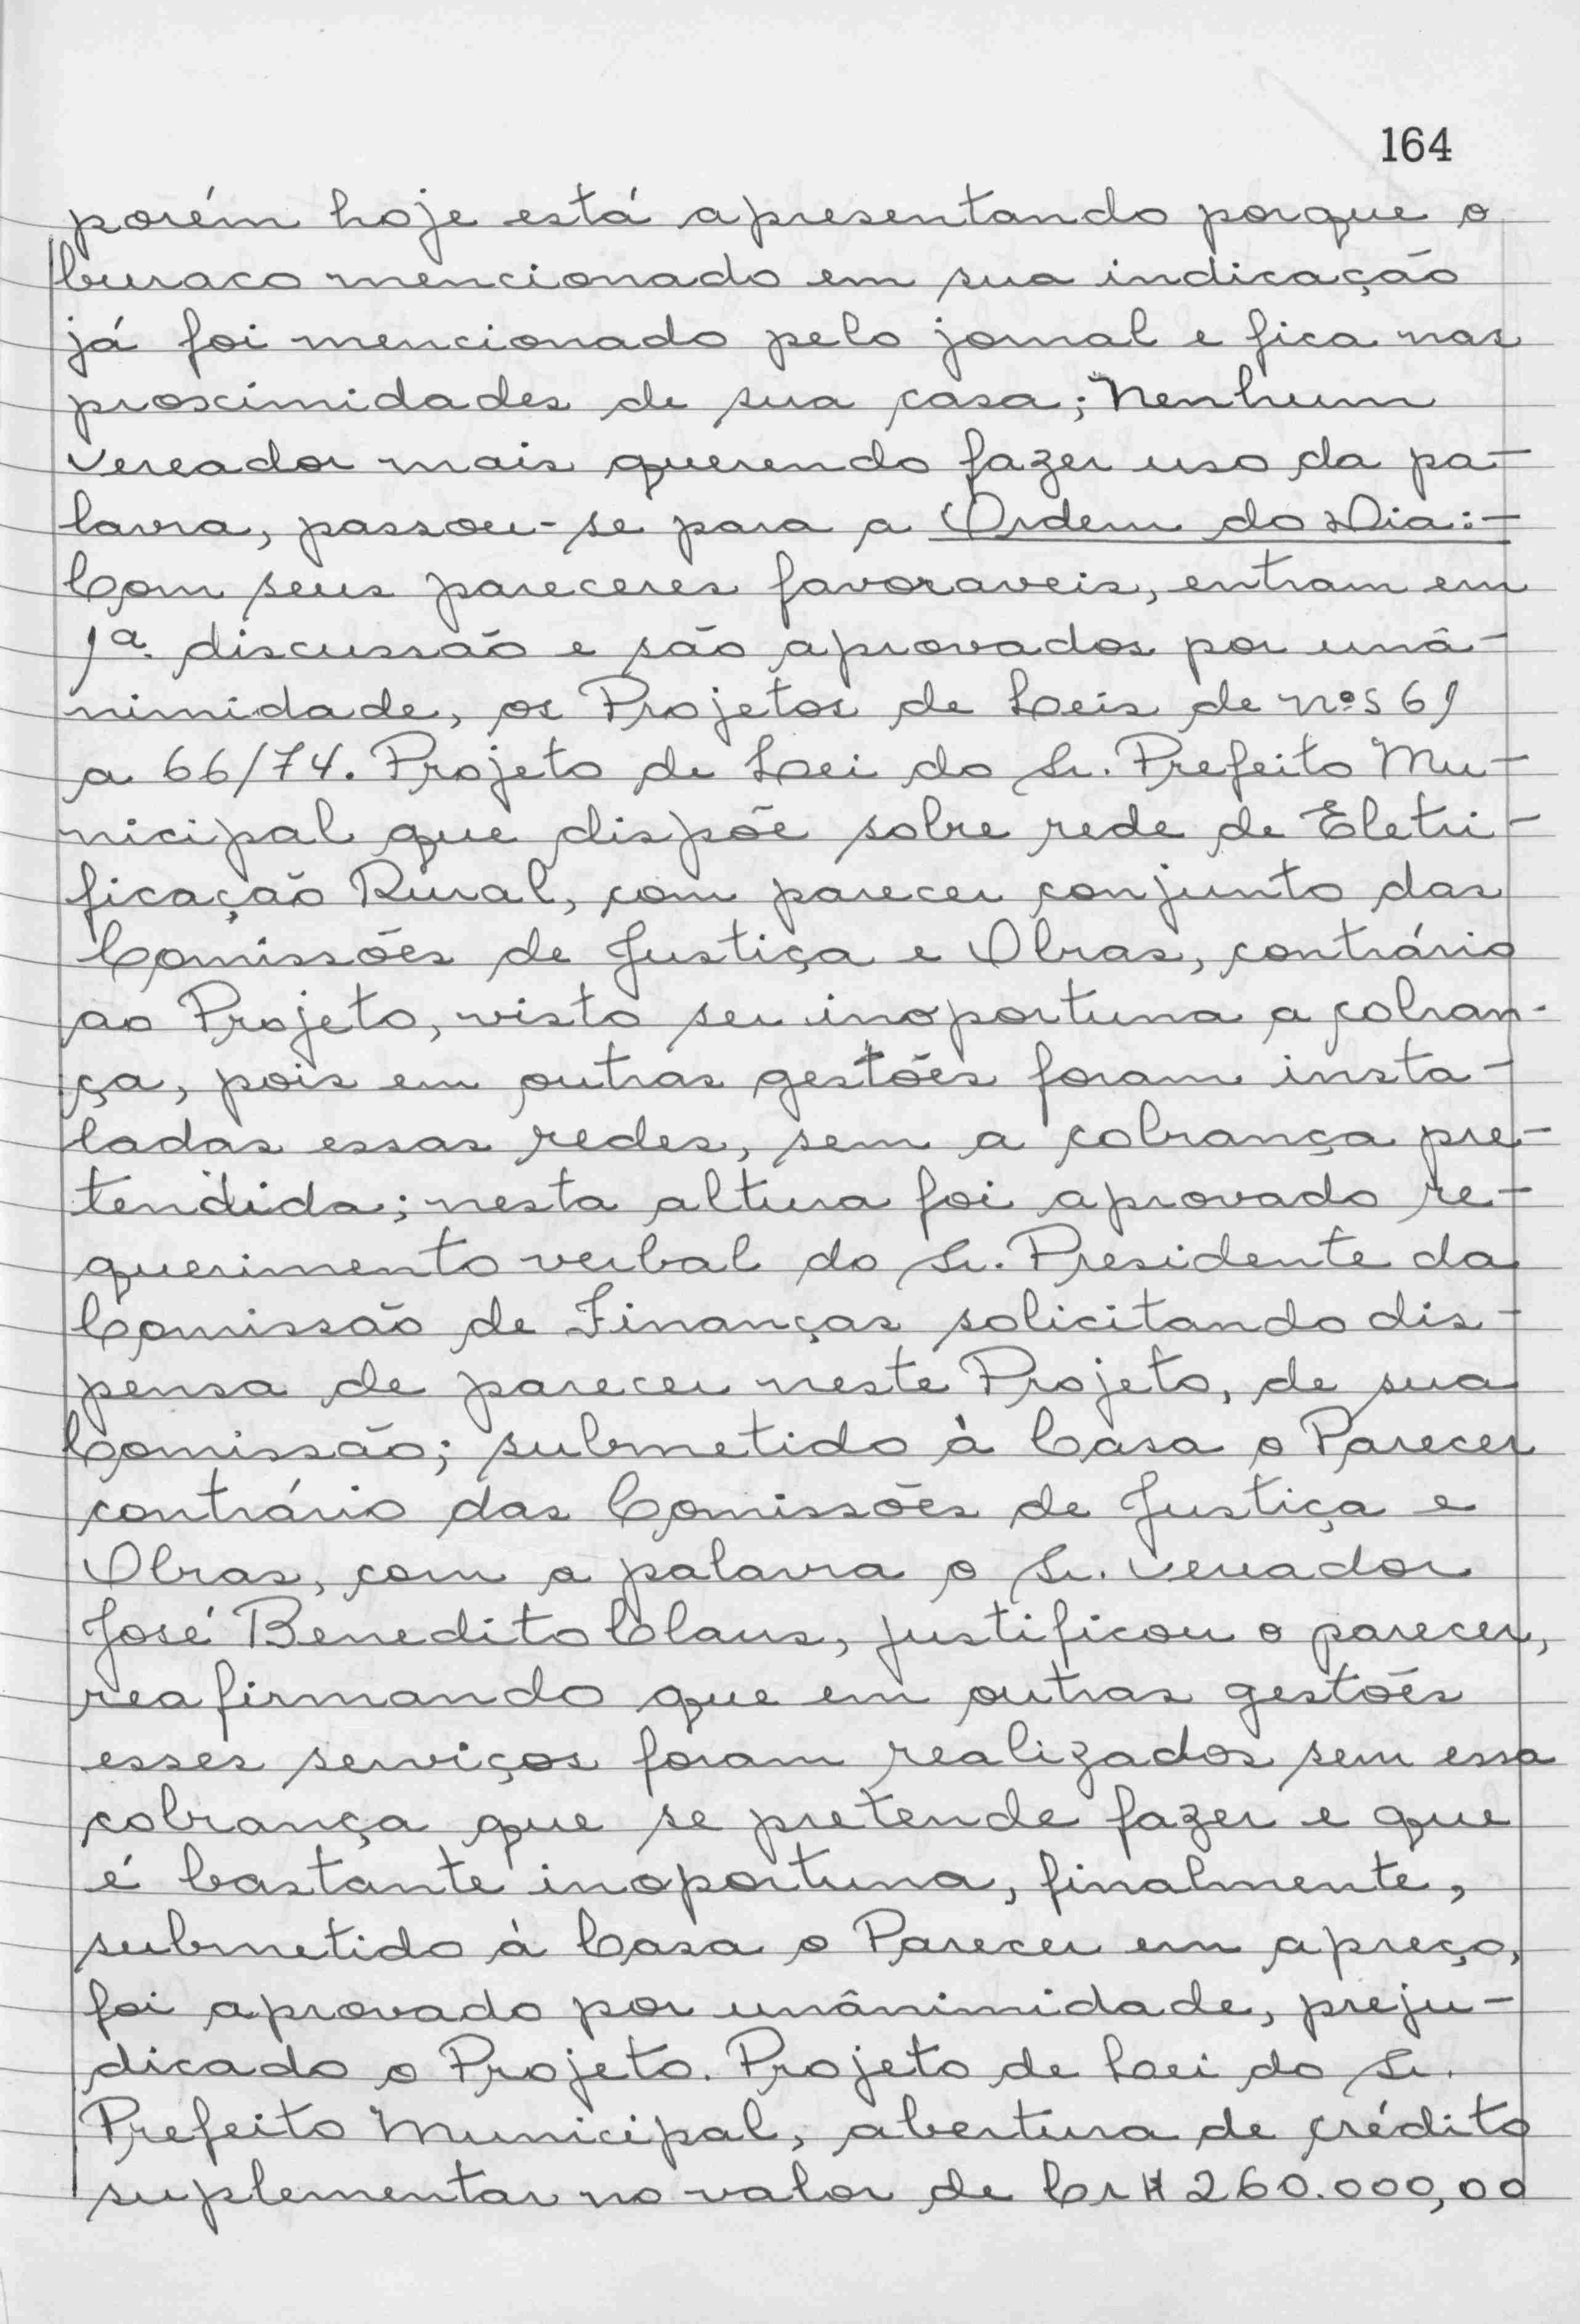 164
porém hoje está apresentando porque o
buraco mencionado em sua indicação
já foi mencionado pelo jornal e fica nas
proximidades de sua casa; Nenhum
vereador mais querendo fazer uso da pa-
lavra, passou-se para a Ordem do Dia:-
Com seus pareceres favoraveis, entram em
1ª. discussão e são aprovados por unâ-
nimidade, os Projetos de Leis de nºs 61
a 66/74. Projeto de Lei do Sr. Prefeito Mu-
nicipal que dispõe sobre rede de Eletri-
ficação Rural, com parecer conjunto das
Comissões de Justiça e Obras, contrário
ao Projeto, visto ser inoportuna a cobran-
ça, pois em outras gestões foram insta-
ladas essas redes, sem a cobrança pre-
tendida; nesta altura foi aprovado re-
querimento verbal do Sr. Presidente da
Comissão de Finanças solicitando dis-
pensa de parecer neste Projeto, de sua
Comissão; submetido à Casa o Parecer
contrário das Comissões de Justiça e
Obras, com a palavra o Sr. vereador
José Benedito Claus, justificou o parecer,
reafirmando que em outras gestões
esses serviços foram realizados sem essa
cobrança que se pretende fazer e que
é bastante inoportuna, finalmente,
submetido à Casa o Parecer em apreço,
foi aprovado por unânimidade, preju-
dicado o Projeto. Projeto de Lei do Sr.
Prefeito Municipal, abertura de crédito
suplementar no valor de Cr$ 260.000,00